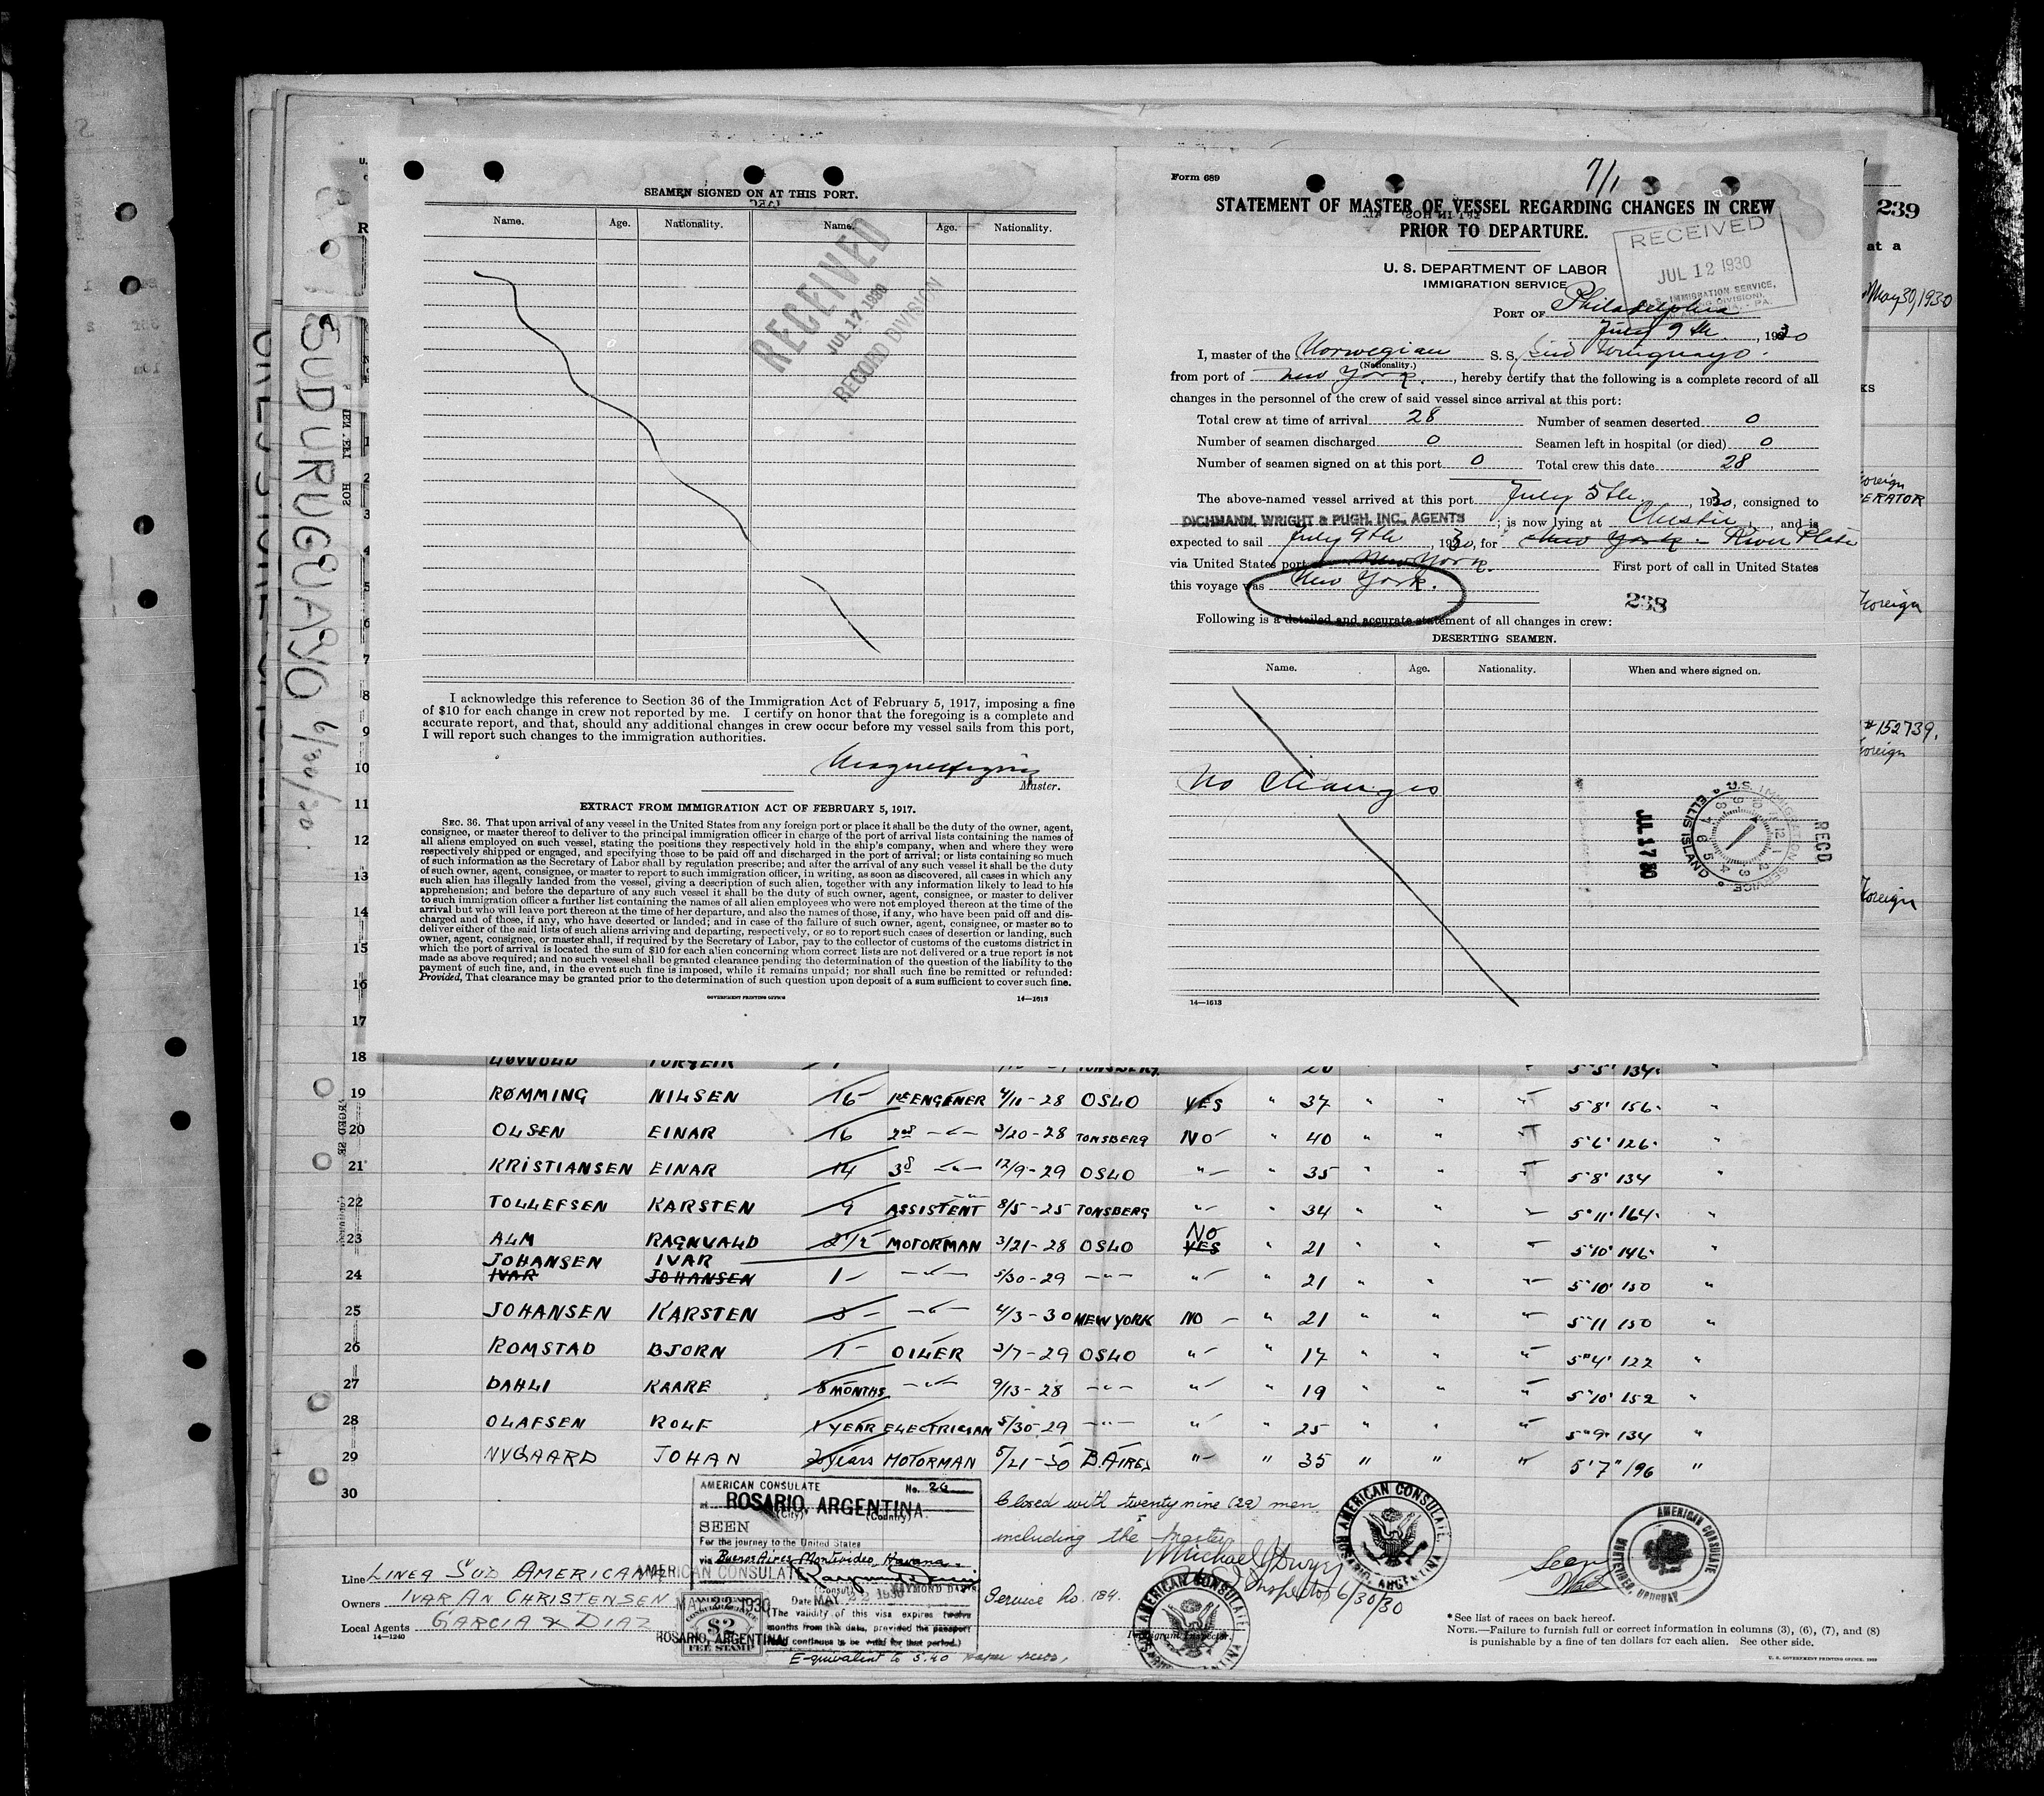 SEAMEN SIGNED ON AT THIS PORT.
Name. Age. Nationality. Name. Age. Nationality.
RECEIVED
JUL 17 1930
RECORD DIVISION
I acknowledge this reference to Section 36 of the Immigration Act of February 5, 1917, imposing a fine
of $10 for each change in crew not reported by me. I certify on honor that the foregoing is a complete and
accurate report, and that, should any additional changes in crew occur before my vessel sails from this port,
I will report such changes to the immigration authorities.
Master.
EXTRACT FROM IMMIGRATION ACT OF FEBRUARY 5, 1917.
SEC. 36. That upon arrival of any vessel in the United States from any foreign port or place it shall be the duty of the owner, agent,
consignee, or master thereof to deliver to the principal immigration officer in charge of the port of arrival lists containing the names of
all aliens employed on such vessel, stating the positions they respectively hold in the ship's company, when and where they were
respectively shipped or engaged, and specifying those to be paid off and discharged in the port of arrival; or lists containing so much
of such information as the Secretary of Labor shall by regulation prescribe; and after the arrival of any such vessel it shall be the duty
of such owner, agent, consignee, or master to report to such immigration officer, in writing, as soon as discovered, all cases in which any
such alien has illegally landed from the vessel, giving a description of such alien, together with any information likely to lead to his
apprehension; and before the departure of any such vessel it shall be the duty of such owner, agent, consignee, or master to deliver
to such immigration officer a further list containing the names of all alien employees who were not employed thereon at the time of the
arrival but who will leave port thereon at the time of her departure, and also the names of those, if any, who have been paid off and dis-
charged and of those, if any, who have deserted or landed; and in case of the failure of such owner, agent, consignee, or master so to
deliver either of the said lists of such aliens arriving and departing, respectively, or so to report such cases of desertion or landing, such
owner, agent, consignee, or master shall, if required by the Secretary of Labor, pay to the collector of customs of the customs district in
which the port of arrival is located the sum of $10 for each alien concerning whom correct lists are not delivered or a true report is not
made as above required; and no such vessel shall be granted clearance pending the determination of the question of the liability to the
payment of such fine, and, in the event such fine is imposed, while it remains unpaid; nor shall such fine be remitted or refunded:
Provided, That clearance may be granted prior to the determination of such question upon deposit of a sum sufficient to cover such fine.
GOVERNMENT PRINTING OFFICE 14—1613
Form 689
7/1
STATEMENT OF MASTER OF VESSEL REGARDING CHANGES IN CREW
PRIOR TO DEPARTURE.
U. S. DEPARTMENT OF LABOR
IMMIGRATION SERVICE
RECEIVED
JUL 12 1930
U. S. IMMIGRATION SERVICE,
PORT OF Philadelphia
July 9th, 1930
I, master of the Norwegian S. S. Sud Uruguayo.
(Nationality.)
from port of New York, hereby certify that the following is a complete record of all
changes in the personnel of the crew of said vessel since arrival at this port:
Total crew at time of arrival 28 Number of seamen deserted 0
Number of seamen discharged 0 Seamen left in hospital (or died) 0
Number of seamen signed on at this port 0 Total crew this date 28
The above-named vessel arrived at this port July 5th, 1930, consigned to
DICHMANN, WRIGHT & PUGH, INC., AGENTS; is now lying at Chester, and is
expected to sail July 9th, 1930, for New York - River Plate
via United States port New York. First port of call in United States
this voyage was New York.
238
Following is a detailed and accurate statement of all changes in crew:
DESERTING SEAMEN.
Name. Age. Nationality. When and where signed on.
No changes
U.S. IMMIGRATION SERVICE ELLIS ISLAND
RECD
JUL 17 30
14—1613
239
at a
May 30, 1930
KS
Foreign
ERATOR
Foreign
#152739.
Foreign
Foreign
SUD URUGUAYO 6/30/30
1
2
3
4
5
6
7
8
9
10
11
12
13
14
15
16
17
18 TORGEIR TONSBERG 5"5' 134
19 RØMMING NILSEN 16 1st ENGENER 4/11-28 OSLO YES " 37 " " " 5'8' 156 "
20 OLSEN EINAR 16 2nd -"- 3/20-28 TONSBERG NO " 40 " " " 5'6' 126 "
21 KRISTIANSEN EINAR 14 3d -"- 12/9-29 OSLO " " 35 " " " 5'8' 134 "
22 TOLLEFSEN KARSTEN 9 ASSISTENT -"- 8/5-25 TONSBERG " " 34 " " " 5"11' 164 "
23 ALM RAGNVALD 2 1/2 MOTORMAN 3/21-28 OSLO NO YES " 21 " " " 5'10' 146 "
JOHANSEN IVAR
24 IVAR JOHANSEN 1 -"- 5/30-29 -"- " " 21 " " " 5'10' 150 "
25 JOHANSEN KARSTEN 3 -"- 4/3-30 NEW YORK NO " 21 " " " 5"11 150 "
26 ROMSTAD BJORN 1 OILER 3/7-29 OSLO " " 17 " " " 5"4' 122 "
27 DAHLI KAARE 8 MONTHS -"- 9/13-28 -"- " " 19 " " " 5"10' 152 "
28 OLAFSEN ROLF 1 YEAR ELECTRICIAN 5/30-29 -"- " " 25 " " " 5"9' 134 "
29 NYGAARD JOHAN 2 years MOTORMAN 5/21-30 B.AIRES " " 35 " " " 5'7" 196 "
30
Closed with twenty nine (29) men
including the Master
Inspector 6/30/30
Service No. 184.
Immigrant Inspector.
AMERICAN CONSULATE No. 26
at ROSARIO, ARGENTINA.
(City) (Country)
SEEN
For the journey to the United States
via Buenos Aires, Montevideo, Havana.
(Consul) RAYMOND DAVIS
Date MAY 22 1930
(The validity of this visa expires twelve
months from this date, provided the passport
continues to be valid for that period.)
Equivalent to 5.40 paper pesos,
AMERICAN CONSULATE
MAY 22 1930
ROSARIO, ARGENTINA
$2
FEE STAMP
AMERICAN CONSULATE. ROSARIO, ARGENTINA
AMERICAN CONSULATE ROSARIO, ARGENTINA
Seen
AMERICAN CONSULATE MONTEVIDEO, URUGUAY
Line LINEA SUD AMERICANA
Owners IVAR AN CHRISTENSEN
Local Agents GARCIA & DIAZ
14—1240
* See list of races on back hereof.
NOTE.—Failure to furnish full or correct information in columns (3), (6), (7), and (8)
is punishable by a fine of ten dollars for each alien. See other side.
U. S. GOVERNMENT PRINTING OFFICE. 1929